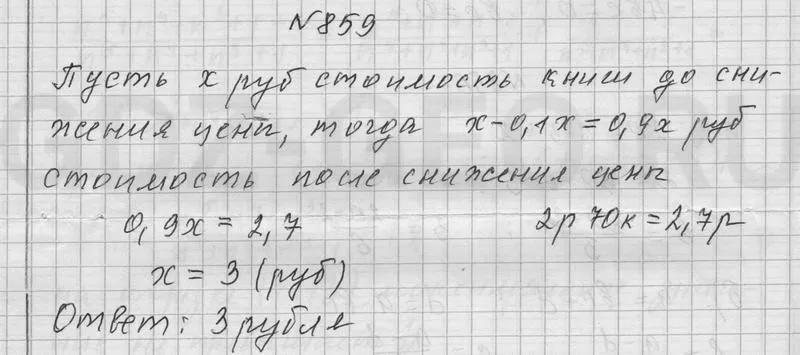 №859
Пусть x руб стоимость книги до сни-
жения цены, тогда x-0,1x=0,9x руб
стоимость после снижения цены
0,9x = 2,7 2р 70к=2,7р
x = 3 (руб)
Ответ: 3 рубля